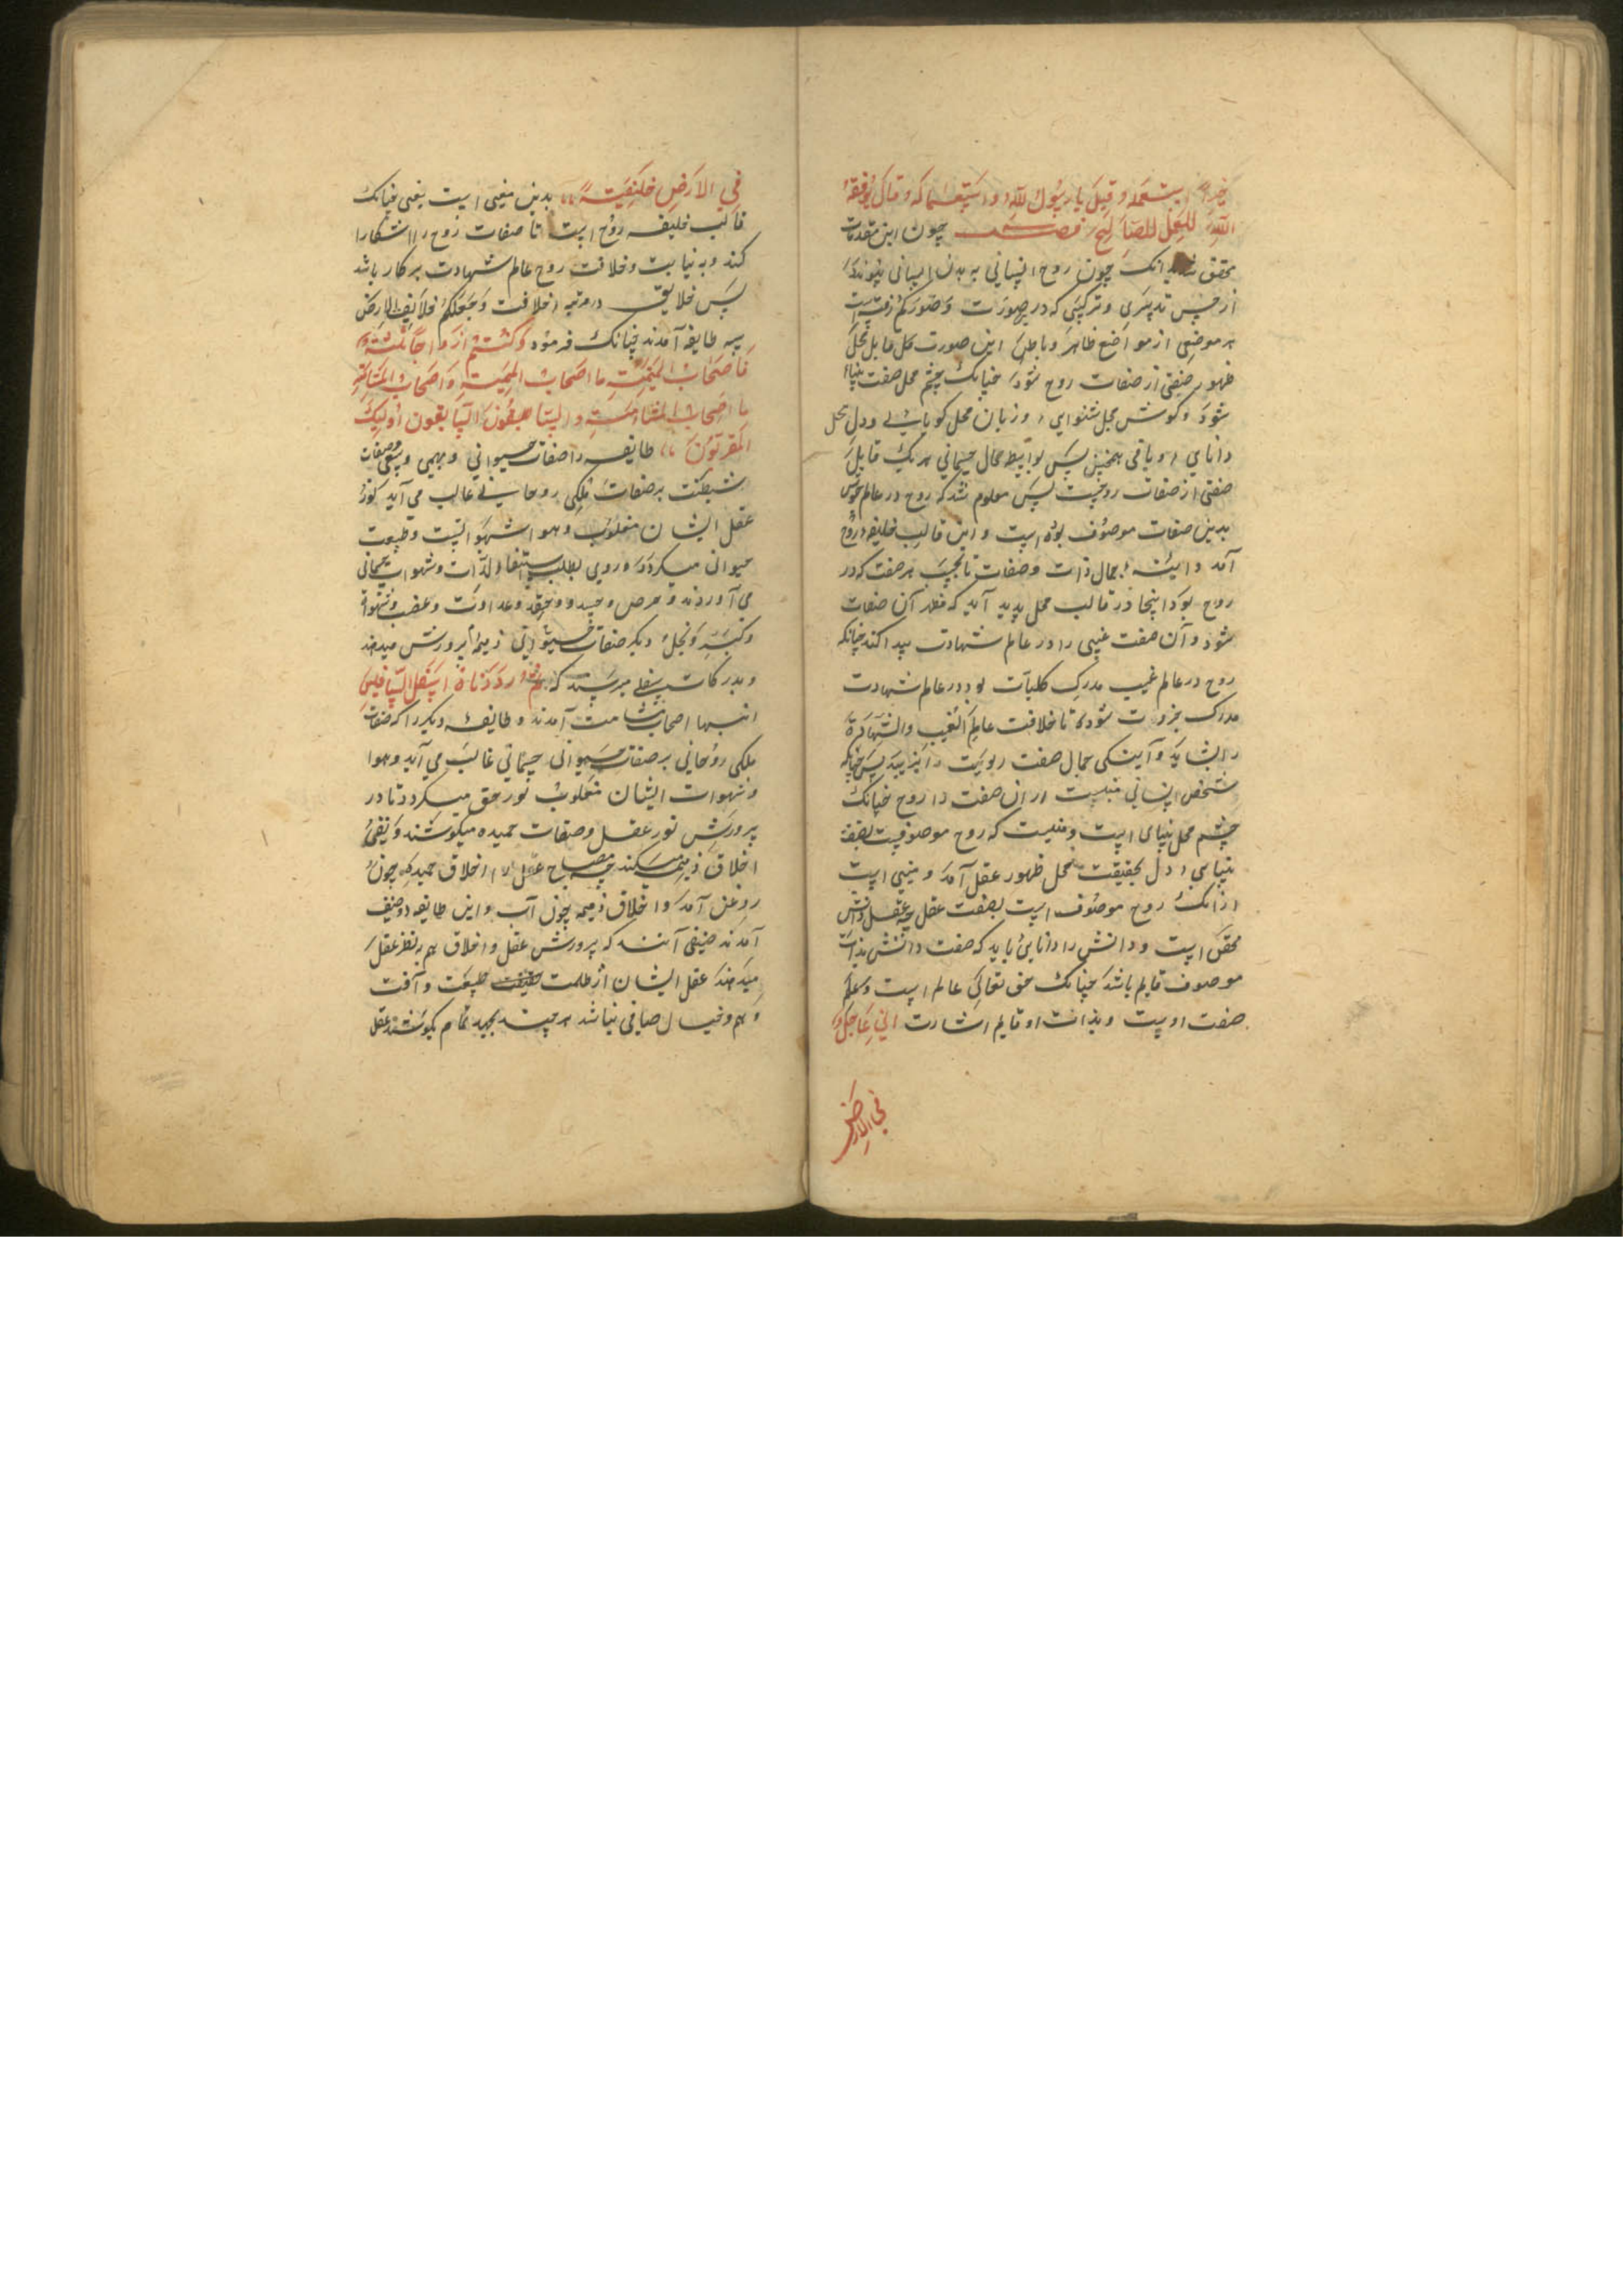 خیرا استعمله و قیل یا رسول الله و استعماله و قال یوفقه
الله للعمل الصالح فصل چون این مقدمات
محقق شد بدانک چون روح انسانی به بدن انسانی پیوندد
از حسن تدبیری و ترکیبی که در صورت وصورکم رفته است
هر موضعی از مواضع ظاهر و باطن این صورت کل قابل محل
ظهور صفتی از صفات روح شود چنانک چشم محل صفت بینائی
شود و گوش محل شنوایی و زبان محل گویائی و دل محل
دانایی و باقی همچنین پس بواسطه محال جسمانی هر یک قابل
صفتی از صفات روحیست پس معلوم شد که روح در عالم خویش
بدین صفات موصوف بوده است و این قالب خلیفه روح
آمد و آینه جمال ذات و صفات تا بحسب هر صفت که در
روح بود اینجا در قالب محل پدید آید که مظهر آن صفات
شود و آن صفت غیبی را در عالم شهادت پیدا کند چنانکه
روح در عالم غیب مدرک کلیات بود در عالم شهادت
مدرک جزویات شود تا خلافت عالم الغیب والشهادة
را بشاید و آینگی جمال صفت ربوبیت را بزیبد پس چنانکه
شخص انسانی منبیست از آن صفت را روح چنانک
چشم محل بینایی است و منبیست که روح موصوفیست بصفت
بینایی و دل بحقیقت محل ظهور عقل آمد و منبی است
از آنک روح موصوف است بصفت عقل چه عقل دانش
محقق است و دانش را دانایی باید که صفت دانش بذات
موصوف قایم باشد چنانک حق تعالی عالم است و علم
صفت اوست و بذات او قایم اشارت انی جاعل
فی الارض
فی الارض خلیفة بدین معنی است یعنی چنانک
قالب خلیفه روح است تا صفات روح را آشکارا
کند و به نیابت و خلافت روح عالم شهادت بر کار باشد
پس خلایق در مرتبه خلافت وجعلکم خلائف الارض
سه طایفه آمدند چنانک فرمود وکنتم ازواجا ثلثة
فاصحاب المیمنة ما اصحاب المیمنة واصحاب المشأمة
ما اصحاب المشأمة والسابقون السابقون اولئک
المقربون طایفه را صفات حیوانی و بهیمی و سبعی و صفات
شیطنت بر صفات ملکی روحانی غالب می آید نور
عقل ایشان مغلوب و هوا شهوانیست و طبیعت
حیوانی میگردد و روی بطلب استیفاء لذات و شهوات جسمانی
می آورند و حرص و حسد و حقد و عداوت و غضب و شهوة
و کبر و بخل و دیگر صفات حیوانی ذمیمه را پرورش میدهند
و بدرکات سفلی میرسند که ثم رددناه اسفل السافلین
اینها اصحاب مشامت آمدند و طایفه دیگر را که صفات
ملکی روحانی بر صفات حیوانی جسمانی غالب می آید و هوا
و شهوات ایشان مغلوب نور حق میگردد تا در
پرورش نور عقل و صفات حمیده میکوشند و نفی
اخلاق ذمیمه میکنند چه مصباح عقل را اخلاق حمیده چون
روغن آمد و اخلاق ذمیمه چون آب و این طایفه دو صنف
آمدند صنفی آنند که پرورش عقل و اخلاق هم بنظر عقل
میدهند عقل ایشان از ظلمت طبیعت و آفت
وهم و خیال صافی نباشد هر چند بجهد تمام بکوشند عقل